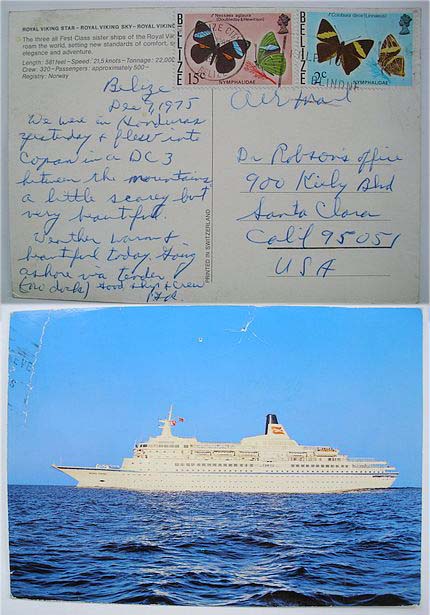 ROYAL VIKING STAR • ROYAL VIKING SKY • ROYAL VIKING
The three all First Class sister ships of the Royal Vik
roam the world, setting new standards of comfort, s
elegance and adventure.
Length: 581 feet - Speed: 21,5 knots - Tonnage: 22,000
Crew: 320 - Passengers: approximately 500 -
Registry: Norway
BELIZE
15c
Nessaea aglaura
(Doubleday & Hewitson)
NYMPHALIDAE
BELIZE
2c
Colobura dirce (Linnaeus)
NYMPHALIDAE
Belize
Dec 7, 1975
We were in Honduras
yesterday & flew into
Copan in a DC 3
between the mountains
a little scarey but
very beautiful.
Weather warm &
beautiful today. Going
ashore via tender
(no dock) Good ship & Crew
PRINTED IN SWITZERLAND
Air Mail
Dr Robson's office
900 Kiely Blvd
Santa Clara
Calif 95051
USA